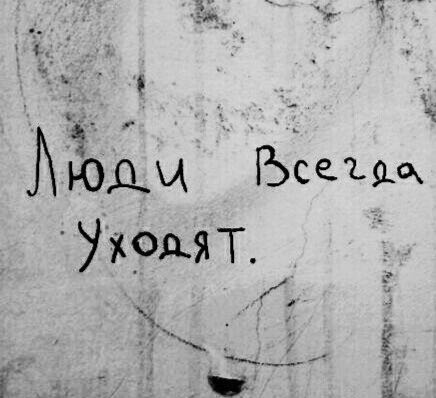 Люди Всегда
Уходят.